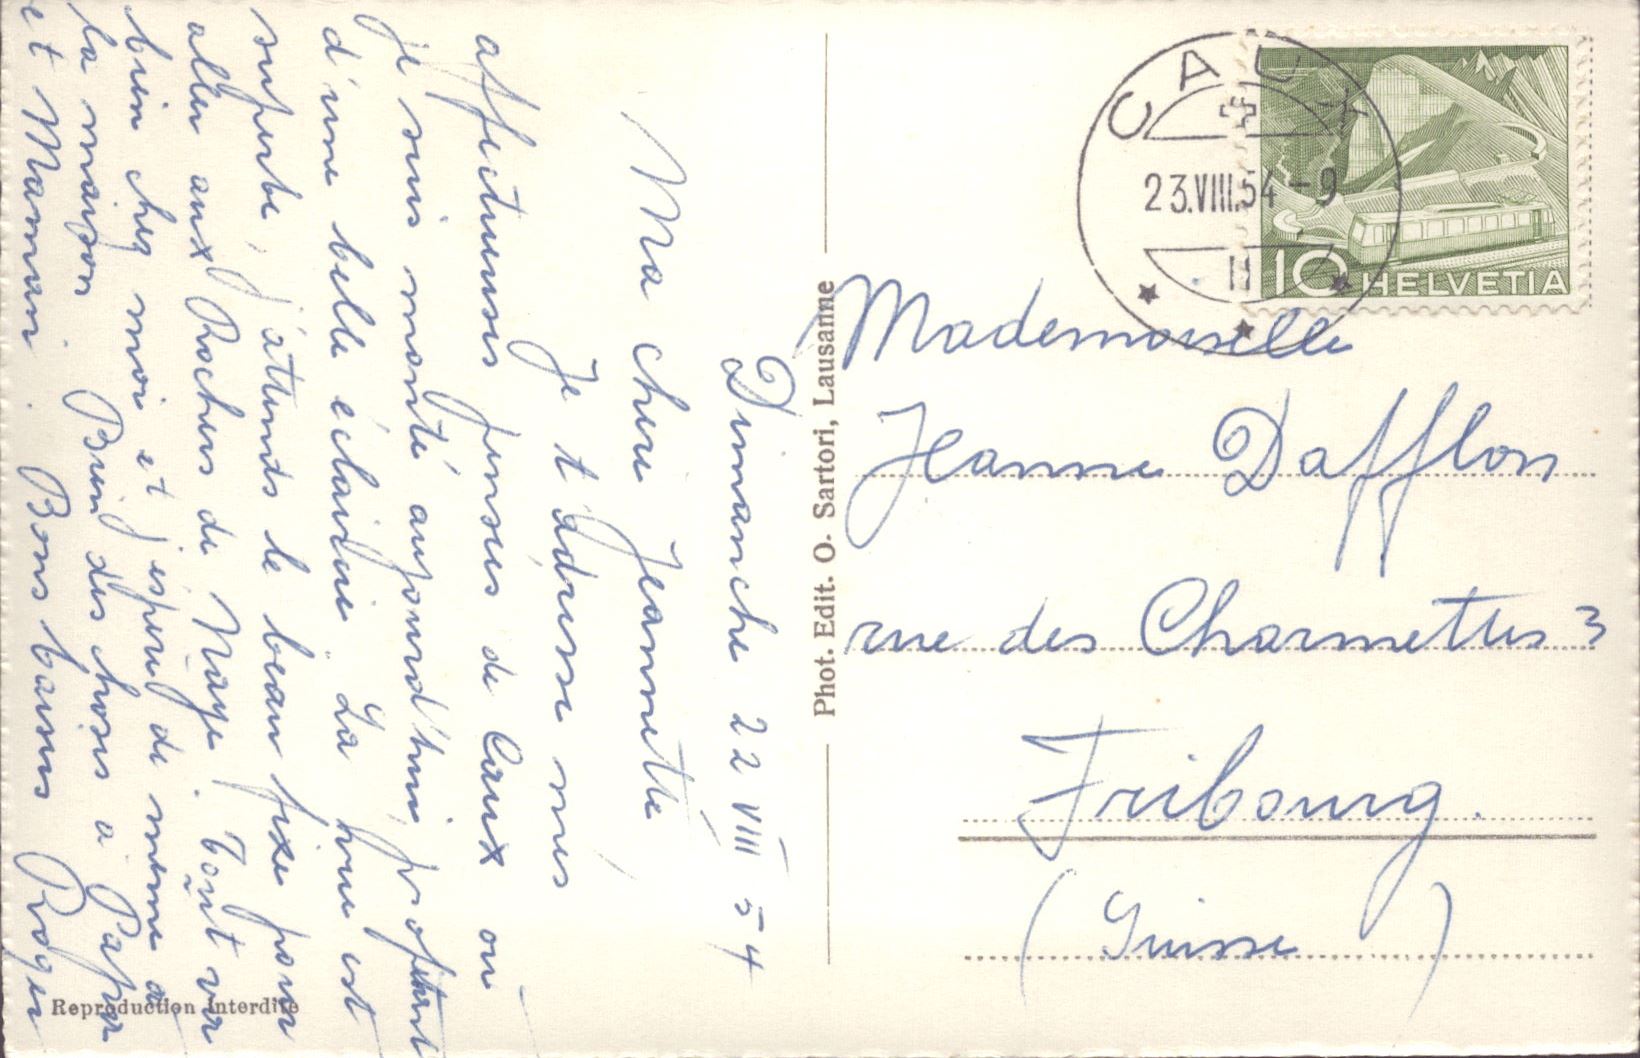 Dimanche 22 VIII 54
Ma chère Jeannette,
Je t'adresse mes
affectueuses pensées de Caux où
je suis monté aujourd'hui, profitant
d'une belle éclaircie. La vue est
superbe, j'attends le beau fixe pour
aller aux Rochers de Naye. Tout va
bien chez moi et j'espère de même à
la maison. Bien des choses à Papa
et Maman. Bons baisers Roger
Reproduction interdite
Phot. Edit. O. Sartori, Lausanne
CAUX
23.VIII.54-9
10 HELVETIA
Mademoiselle
Jeanne Dafflon
rue des Charmettes 3
Fribourg.
(Suisse)